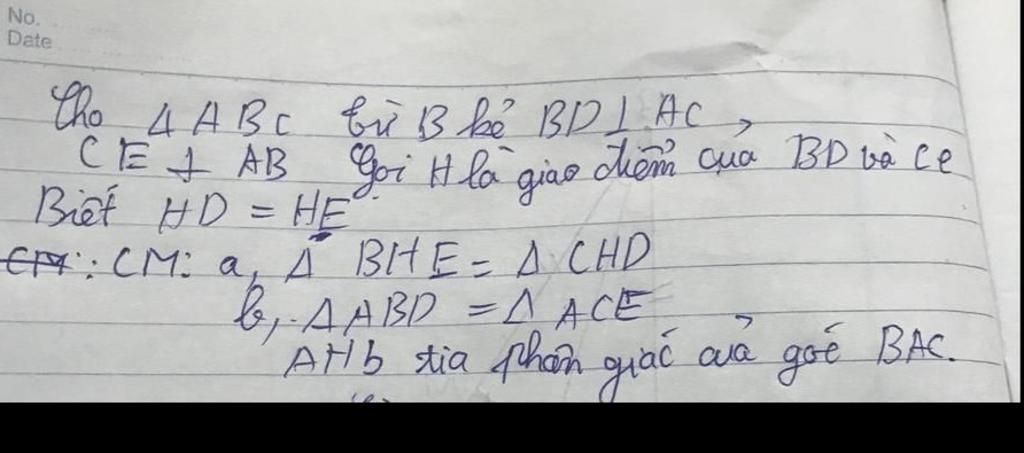 No.
Date
Cho Δ ABC từ B kẻ BD⊥AC,
CE ⊥ AB Gọi H là giao điểm của BD và CE
Biết HD = HE
CM: CM: a, Δ BHE = Δ CHD
b, ΔABD = Δ ACE
AH là tia phân giác của góc BAC.